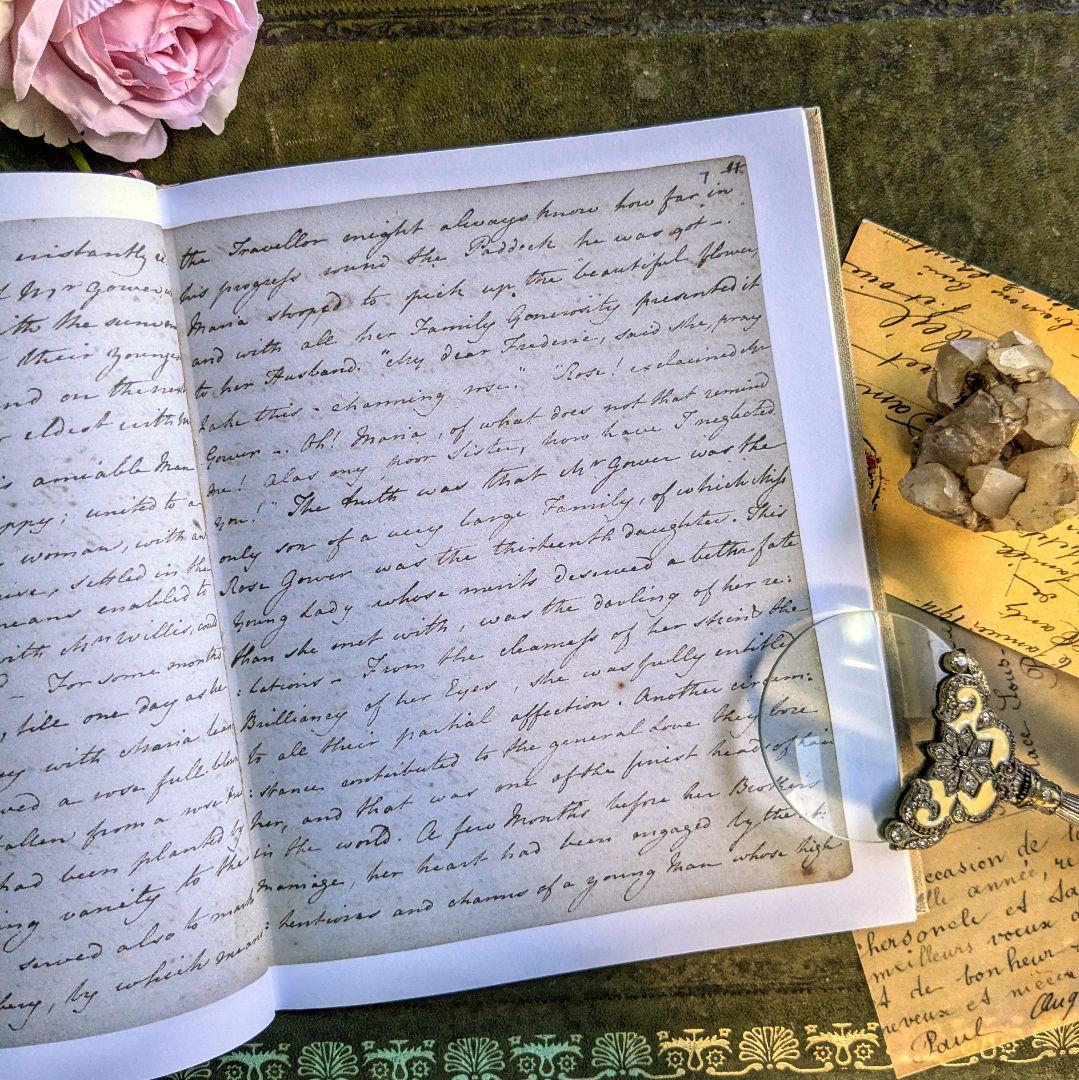 instantly
Mr Gower
ith the
their younges
nd on the next
eldest with
amiable Man
ppy; united to a
woman, with an
settled in the
means enabled to
with Mr Willis, could
For some months
till one day as he
with Maria
ved a rose full blown
allen from a rose
had been planted by
ing vanity to the
served also to mark
by which means
7
the Travellor might always know how far in
his progress round the Paddock he was got —.
Maria stooped to pick up the beautiful flower
and with all her Family Generosity presented it
to her Husband. "My dear Frederic, said she, pray
take this charming rose." "Rose! exclaimed Mr
Gower —. Oh! Maria, of what does not that remind
me! Alas my poor Sister, how have I neglected
you!" The truth was that Mr Gower was the
only son of a very large Family, of which Miss
Rose Gower was the thirteenth daughter. This
Young Lady whose merits deserved a better fate
than she met with, was the darling of her re:
:lations — From the clearness of her skin & the
Brilliancy of her Eyes, she was fully entitled
to all their partial affection. Another circum:
:stance contributed to the general Love they bore
her, and that was one of the finest heads of hair
in the world. A few Months before her Brother's
marriage, her heart had been engaged by the at:
:tentions and charms of a young Man whose high
casion de
lle année,
personele et
meilleurs voeux
de bonheur
neveux et nièces
Paul